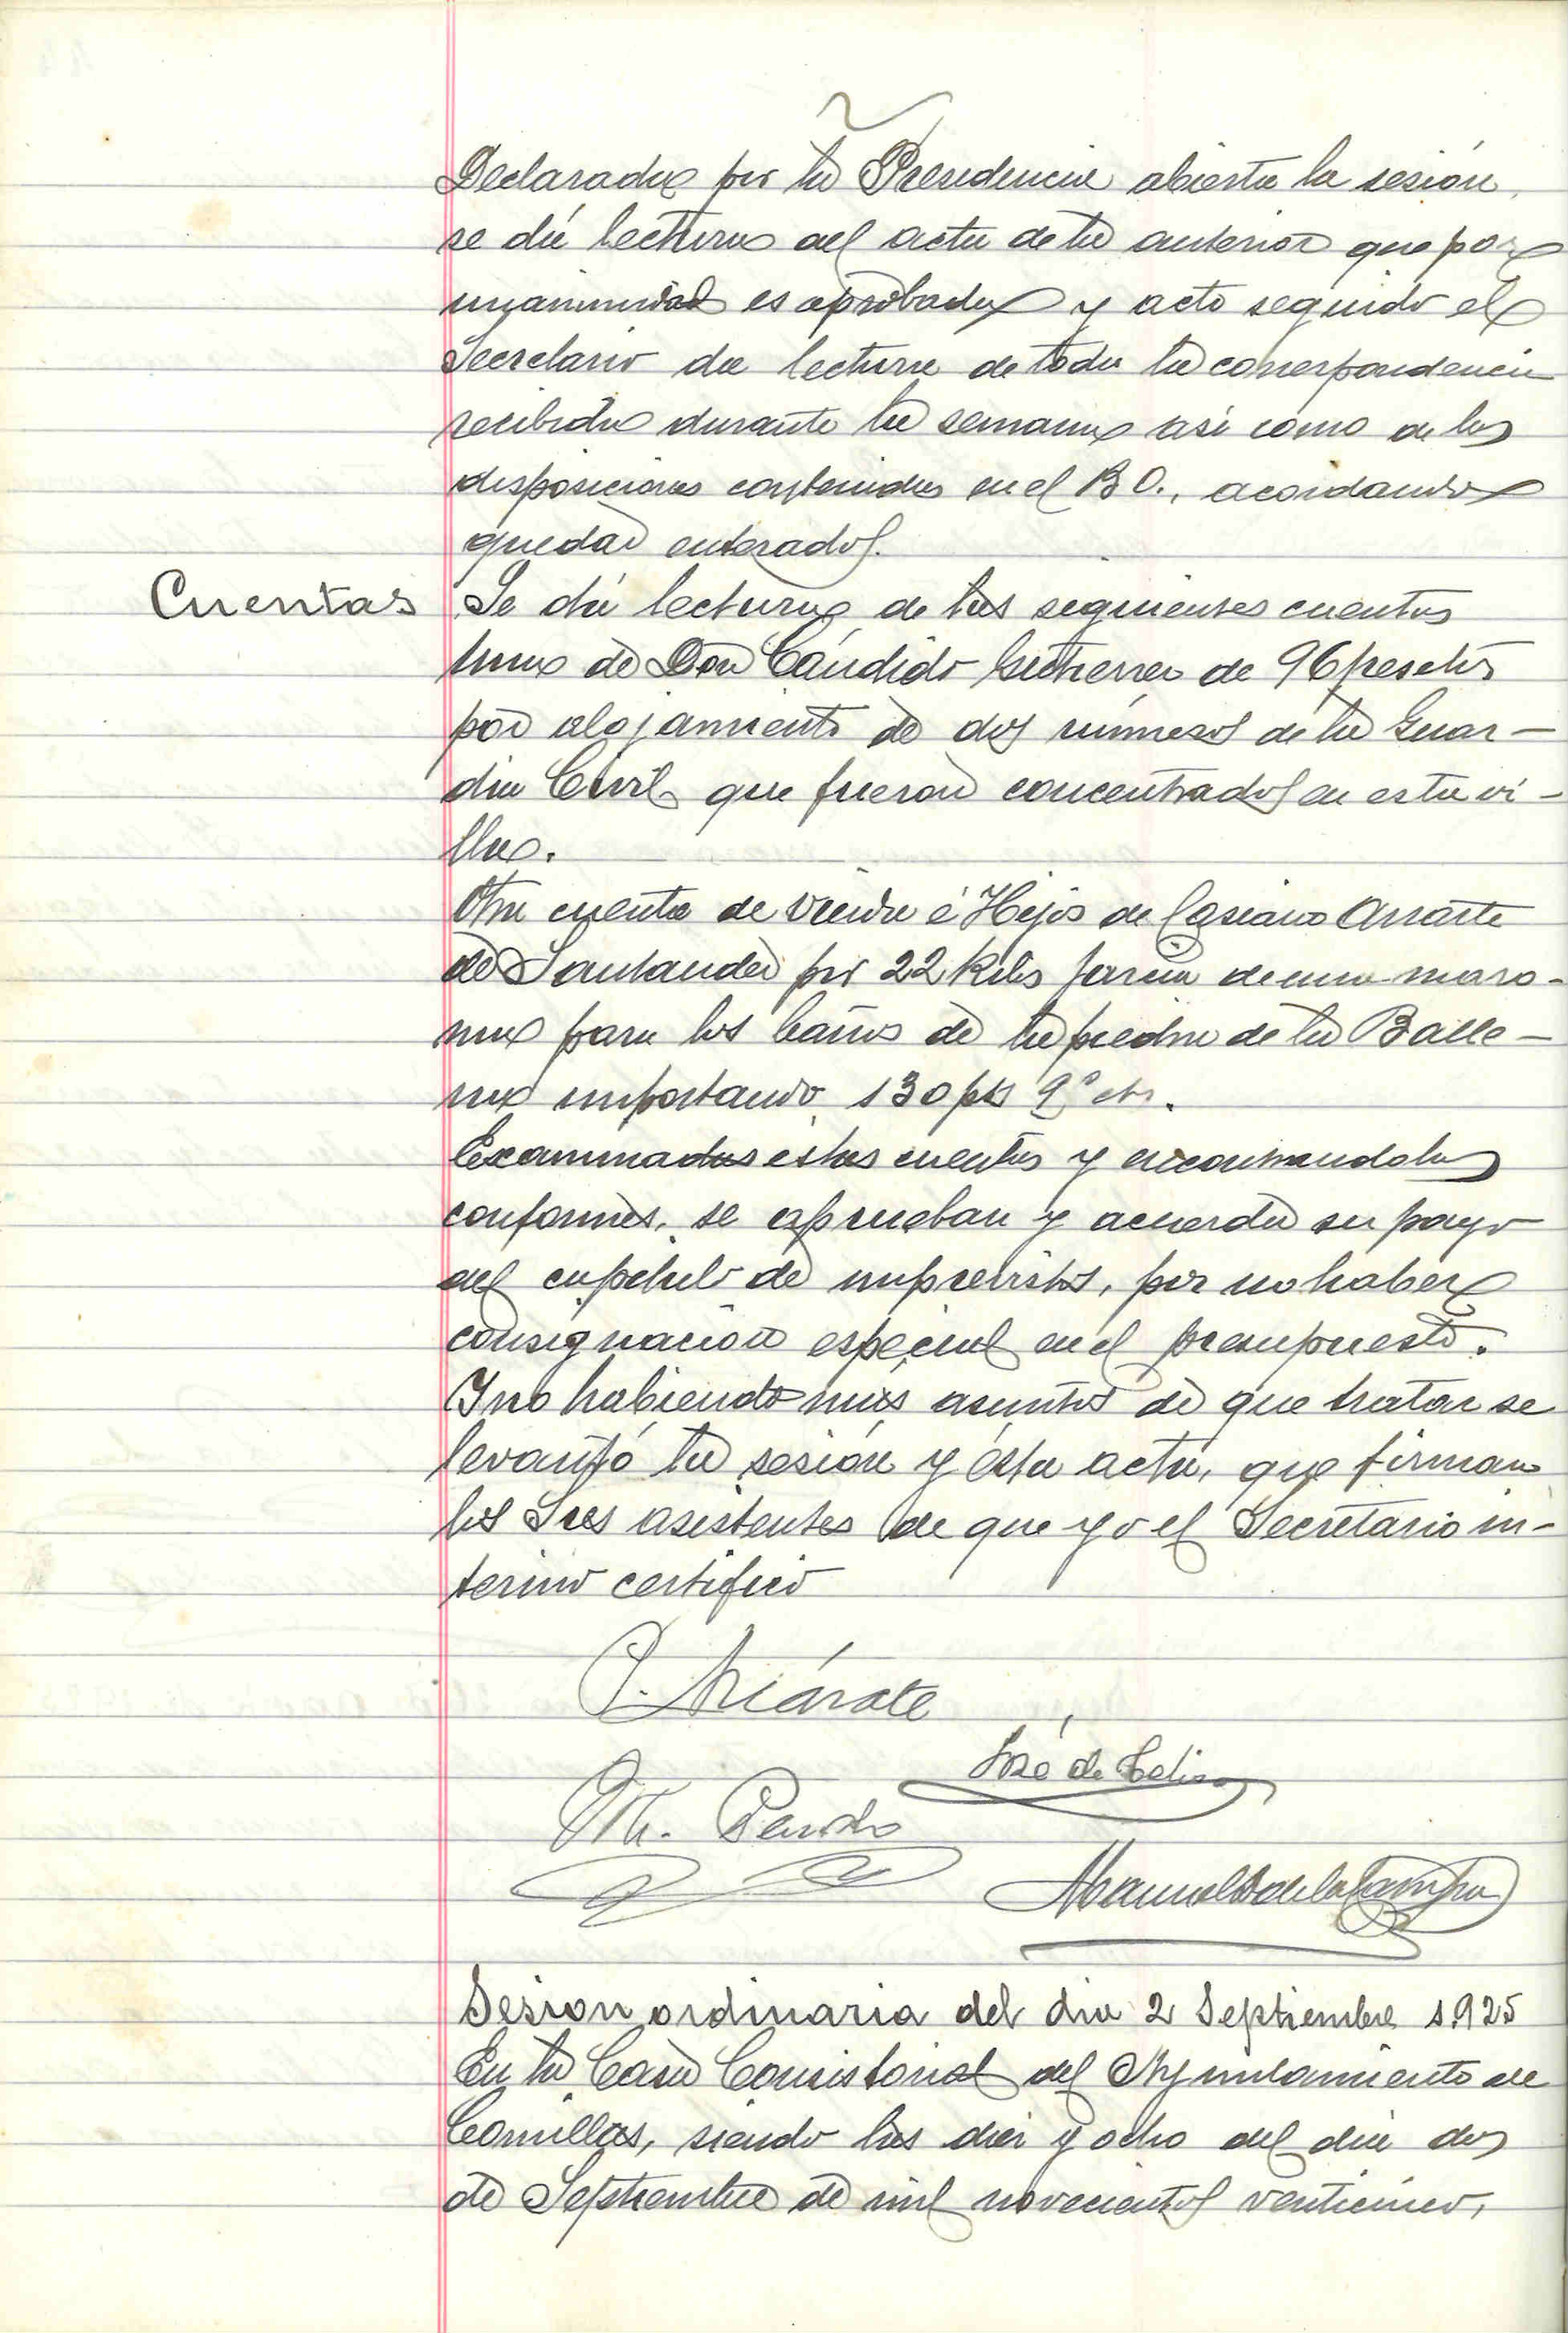 Declarada por la Presidencia abierta la sesión,
se dá lectura del acta de la anterior que por
unanimidad es aprobada y acto seguido el
Secretario da lectura de toda la correspondencia
recibida durante la semana así como de las
disposiciones contenidas en el B O., acordando
quedar enterados.
Cuentas
Se dá lectura de las siguientes cuentas
una de Don Cándido Gutierrez de 96 pesetas
por alojamiento de dos números de la Guar-
dia Civil que fueron concentrados en esta vi-
lla.
Otra cuenta de viuda é Hijos de Casiano Arrarte
de Santander por 22 kilos de una maro-
ma para los baños de la piedra de la Balle-
na importando 130 pts 9º cts.
Examinadas estas cuentas y encontrandolas
conformes, se aprueban y acuerda su pago
del capitulo de imprevistos, por no haber
consignación especial en el presupuesto.
Y no habiendo más asuntos de que tratar se
levantó la sesión y ésta acta, que firman
los Sres asistentes de que yo el Secretario in-
terino certifico
José de Celis
M. Pardo
Manuel de la Campa
Sesion ordinaria del dia 2 Septiembre 1925
En la Casa Consistorial del Ayuntamiento de
Comillas, siendo las diez y ocho del dia dos
de Septiembre de mil novecientos venticinco,